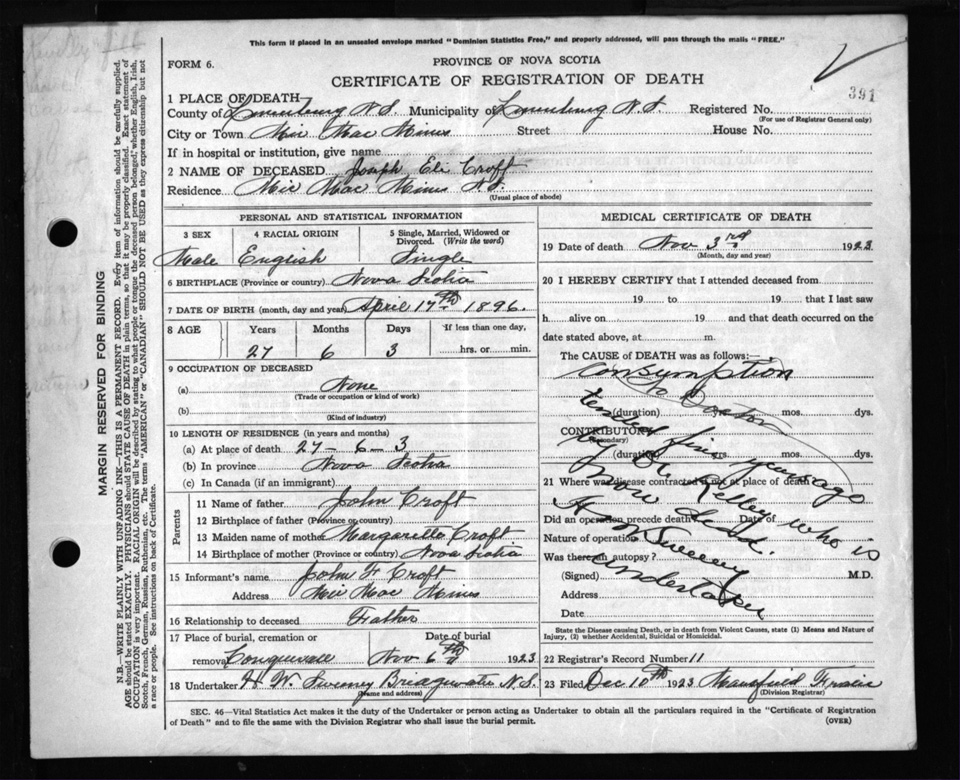 This form if placed in an unsealed envelope marked "Dominion Statistics Free," and properly addressed, will pass through the mails "FREE."
FORM 6.
PROVINCE OF NOVA SCOTIA
CERTIFICATE OF REGISTRATION OF DEATH
391
1 PLACE OF DEATH
County of Lunenburg N.S. Municipality of Lunenburg N.S. Registered No.
(For use of Registrar General only)
City or Town Mic Mac Mines Street House No.
If in hospital or institution, give name
2 NAME OF DECEASED Joseph Eli Croft
Residence Mic Mac Mines N.S.
(Usual place of abode)
PERSONAL AND STATISTICAL INFORMATION
3 SEX 4 RACIAL ORIGIN 5 Single, Married, Widowed or Divorced. (Write the word)
Male English Single
6 BIRTHPLACE (Province or country) Nova Scotia
7 DATE OF BIRTH (month, day and year) April 17th 1896.
8 AGE Years Months Days If less than one day,
27 6 3 hrs. or min.
9 OCCUPATION OF DECEASED
(a) None
(Trade or occupation or kind of work)
(b)
(Kind of industry)
10 LENGTH OF RESIDENCE (in years and months)
(a) At place of death 27-6-3
(b) In province Nova Scotia
(c) In Canada (if an immigrant)
Parents
11 Name of father John Croft
12 Birthplace of father (Province or country)
13 Maiden name of mother Margaretta Croft
14 Birthplace of mother (Province or country) Nova Scotia
15 Informant's name John F Croft
Address Mic Mac Mines
16 Relationship to deceased Father
17 Place of burial, cremation or Date of burial
removal Conquerall Nov 6th 1923
18 Undertaker H. W. Sweeney Bridgewater N.S.
(Name and address)
MEDICAL CERTIFICATE OF DEATH
19 Date of death Nov 3rd 1923
(Month, day and year)
20 I HEREBY CERTIFY that I attended deceased from
19 to 19 that I last saw
h alive on 19 and that death occurred on the
date stated above, at m.
The CAUSE of DEATH was as follows:
Consumption
No Doctor
(duration) yrs. mos. dys.
tended five years ago
CONTRIBUTORY
(Secondary)
(duration) yrs. mos. dys.
by Dr Kelley who is
21 Where was disease contracted if not at place of death
now dead.
Did an operation precede death Date of
Nature of operation
H W Sweeney
Was there an autopsy?
Undertaker
(Signed) M.D.
Address
Date
State the Disease causing Death, or in death from Violent Causes, state (1) Means and Nature of
Injury, (2) whether Accidental, Suicidal or Homicidal.
22 Registrar's Record Number 11
23 Filed Dec 10th 1923 Mansfield
(Division Registrar)
SEC. 46—Vital Statistics Act makes it the duty of the Undertaker or person acting as Undertaker to obtain all the particulars required in the "Certificate of Registration
of Death" and to file the same with the Division Registrar who shall issue the burial permit.
(OVER)
MARGIN RESERVED FOR BINDING
N.B.—WRITE PLAINLY WITH UNFADING INK—THIS IS A PERMANENT RECORD. Every item of information should be carefully supplied.
AGE should be stated EXACTLY. PHYSICIANS should STATE CAUSE OF DEATH in plain terms, so that it may be properly classified. Exact statement of
OCCUPATION is very important. RACIAL ORIGIN will be described by stating to what people or tongue the deceased person belonged, whether English, Irish,
Scotch, French, German, Russian, Ruthenian, etc. The terms "AMERICAN" or "CANADIAN" SHOULD NOT BE USED as they express citizenship but not
a race or people. See instructions on back of Certificate.